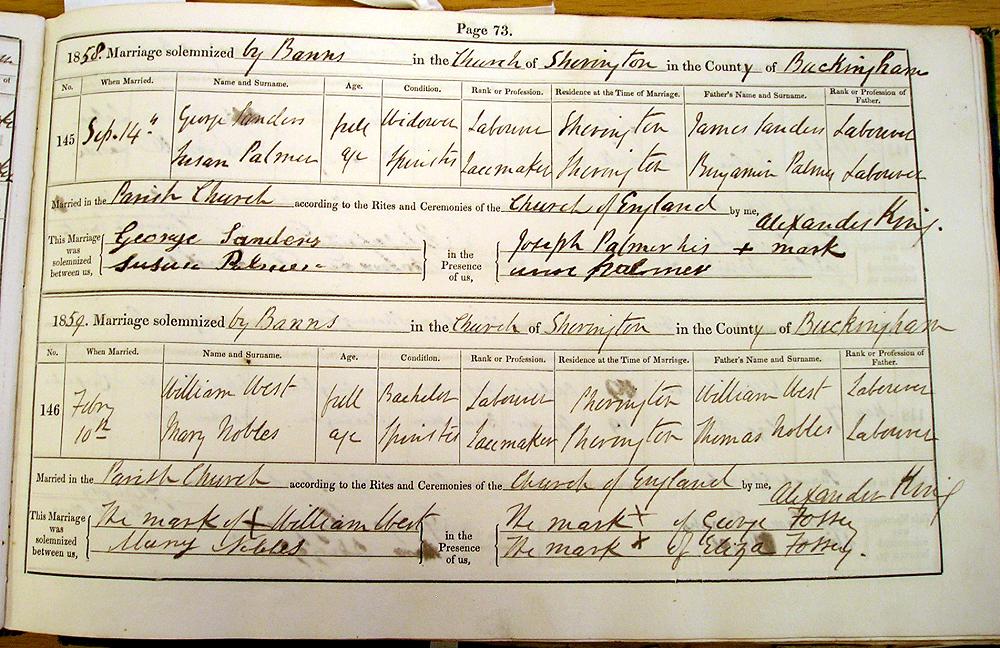 Page 73.
1858. Marriage solemnized by Banns in the Church of Sherington in the County of Buckingham
No. When Married. Name and Surname. Age. Condition. Rank or Profession. Residence at the Time of Marriage. Father's Name and Surname. Rank or Profession of Father.
145 Sep. 14th George Sanders full Widower Labourer Sherington James Sanders Labourer
Susan Palmer age Spinster Lacemaker Sherington Benjamin Palmer Labourer
Married in the Parish Church according to the Rites and Ceremonies of the Church of England by me, Alexander King.
This Marriage was solemnized between us, George Sanders in the Presence of us, Joseph Palmer his + mark
Susan Palmer Palmer
1859. Marriage solemnized by Banns in the Church of Sherington in the County of Buckingham
No. When Married. Name and Surname. Age. Condition. Rank or Profession. Residence at the Time of Marriage. Father's Name and Surname. Rank or Profession of Father.
146 Febry 10th William West full Bachelor Labourer Sherington William West Labourer
Mary Nobles age Spinster Lacemaker Sherington Thomas Nobles Labourer
Married in the Parish Church according to the Rites and Ceremonies of the Church of England by me, Alexander King
This Marriage was solemnized between us, The mark of + William West in the Presence of us, The mark + of George Fossey
Mary Nobles The mark + of Eliza Fossey.